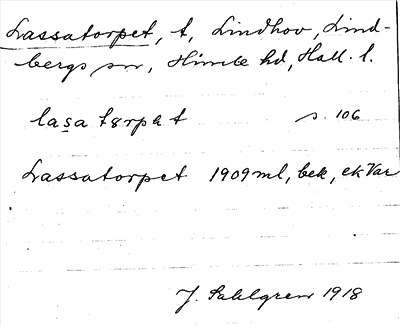 Lassatorpet, t, Lindhov, Lind-
bergs sn, Himle hd, Hall. l.
lasa tɷrpət s. 106
Lassatorpet 1909 ml, bek, ek Var
J. Sahlgren 1918